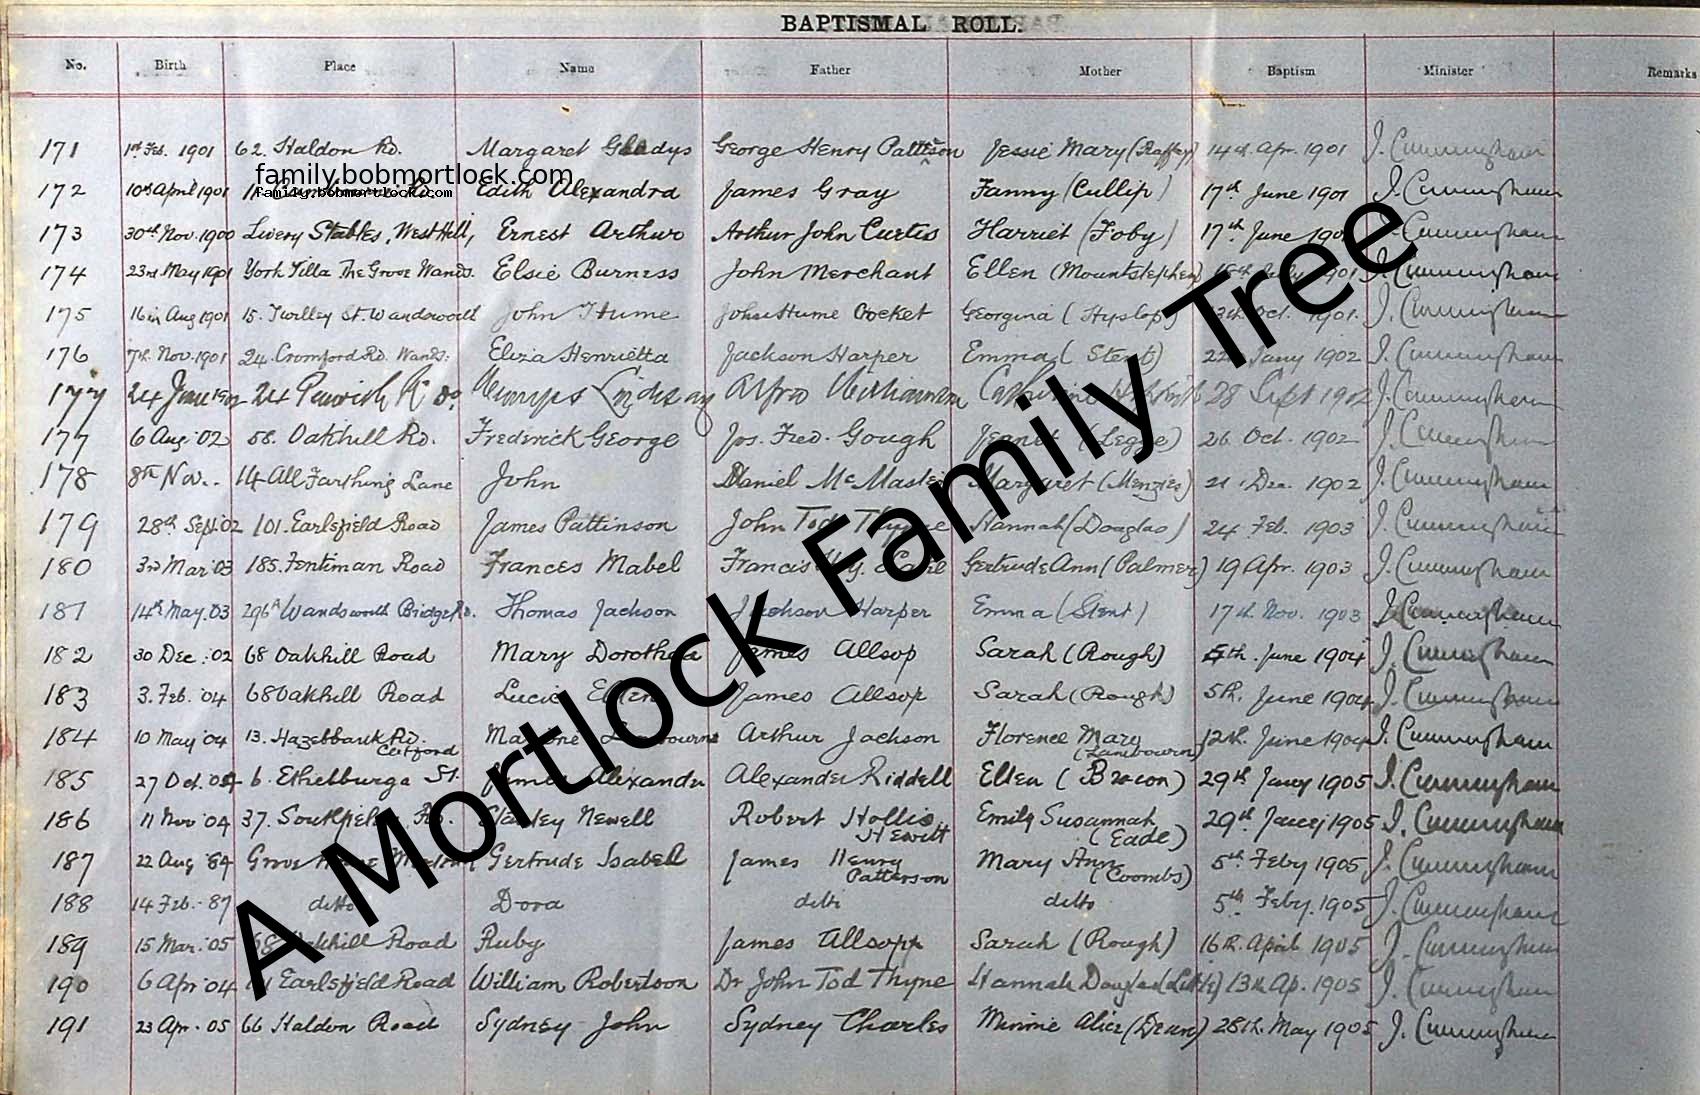 BAPTISMAL ROLL.
No. Birth Place Name Father Mother Baptism Minister Remarks
171 1st Feb. 1901 62. Haldon Rd. Margaret Gladys George Henry Pattison Jessie Mary (Raffey) 14th Apr. 1901 J. Cunningham
family.bobmortlock.com
172 10th April 1901 Edith Alexandra James Gray Fanny (Cullip) 17th June 1901 J. Cunningham
family.bobmortlock.com
173 30th Nov. 1900 Livery Stables, West Hill, Ernest Arthur Arthur John Curtis Harriet (Foby) 17th June J. Cunningham
174 23rd May 1901 York Villa The Grove Wands. Elsie Burness John Merchant Ellen (Mountstephen) 18th July 1901 J. Cunningham
175 16th Aug 1901 15. St. Wandsworth John Hume John Hume Cocket Georgina (Hyslop) Oct. 1901. J. Cunningham
176 7th Nov. 1901 24. Cromford Rd. Wands: Eliza Henrietta Jackson Harper Emma (Stent) Jany 1902 J. Cunningham
177 24 June 24 Rd Do. Lindsay Alfred Williamson Catherine 28 Sept 1902 J. Cunningham
177 6 Aug: 02 58. Oakhill Rd. Frederick George Jos. Fred. Gough Jeanet (Legge) 26 Oct. 1902 J. Cunningham
178 8th Nov.. 14 All Farthing Lane John Daniel McMaster Margaret (Menzies) 21 Dec. 1902 J. Cunningham
179 28th Sept 02 101. Earlsfield Road James Pattinson John Tod Thyne Hannah (Douglas) 24 Feb. 1903 J. Cunningham
180 3rd Mar: 03 185. Fentiman Road Frances Mabel Francis Hy. Gertrude Ann (Palmer) 19 Apr. 1903 J. Cunningham
181 14th May. 03 296A Wandsworth Bridge Rd. Thomas Jackson Jackson Harper Emma (Stent) 17th Nov. 1903 J. Cunningham
182 30 Dec: 02 68 Oakhill Road Mary Dorothea James Allsop Sarah (Rough) 5th. June 1904 J. Cunningham
183 3. Feb. 04 68 Oakhill Road Lucie Ellen James Allsop Sarah (Rough) 5th. June 1904 J. Cunningham
184 10 May '04 13. Hazelbank Rd. Catford Arthur Jackson Florence Mary (Lambourne) 12th. June 1904 J. Cunningham
185 27 Oct. 04 6. Ethelburga St. James Alexander Alexander Riddell Ellen (Bracon) 29th Jany 1905 J. Cunningham
186 11 Nov '04 37. Southfields Rd. Stanley Newell Robert Hollis Hewitt Emily Susannah (Eade) 29th Jany 1905 J. Cunningham
187 22 Aug '84 Grove Gertrude Isabell James Henry Patterson Mary Ann (Coombs) 5th. Feby 1905 J. Cunningham
188 14 Feb. - 87 ditto Dora ditto ditto 5th. Feby. 1905 J. Cunningham
189 15 Mar: 05 68 Oakhill Road Ruby James Allsopp Sarah (Rough) 16th. April 1905 J. Cunningham
190 6 Apr: 04 Earlsfield Road William Robertson Dr John Tod Thyne Hannah Douglas 13th Ap. 1905 J. Cunningham
191 23 Apr. 05 66 Haldon Road Sydney John Sydney Charles Minnie Alice (Dean) 28th. May 1905 J. Cunningham
A Mortlock Family Tree